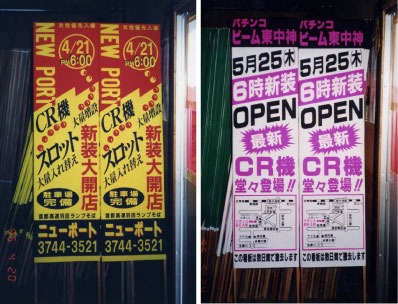 女性優先入場
4/21
PM6:00
NEW PORT
CR機
大量増設
スロット
大量入れ替え
新装大開店
駐車場
完備
首都高速羽田ランプそば
ニューポート
3744-3521
女性優先入場
4/21
PM6:00
NEW PORT
CR機
大量増設
スロット
大量入れ替え
新装大開店
駐車場
完備
首都高速羽田ランプそば
ニューポート
3744-3521
パチンコ
ビーム東中神
5月25木
6時新装
OPEN
最新
CR機
堂々登場!!
この看板は数日間で撤去します
パチンコ
ビーム東中神
5月25木
6時新装
OPEN
最新
CR機
堂々登場!!
この看板は数日間で撤去します